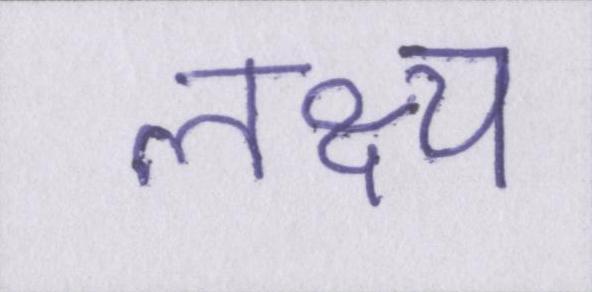 लक्ष्य